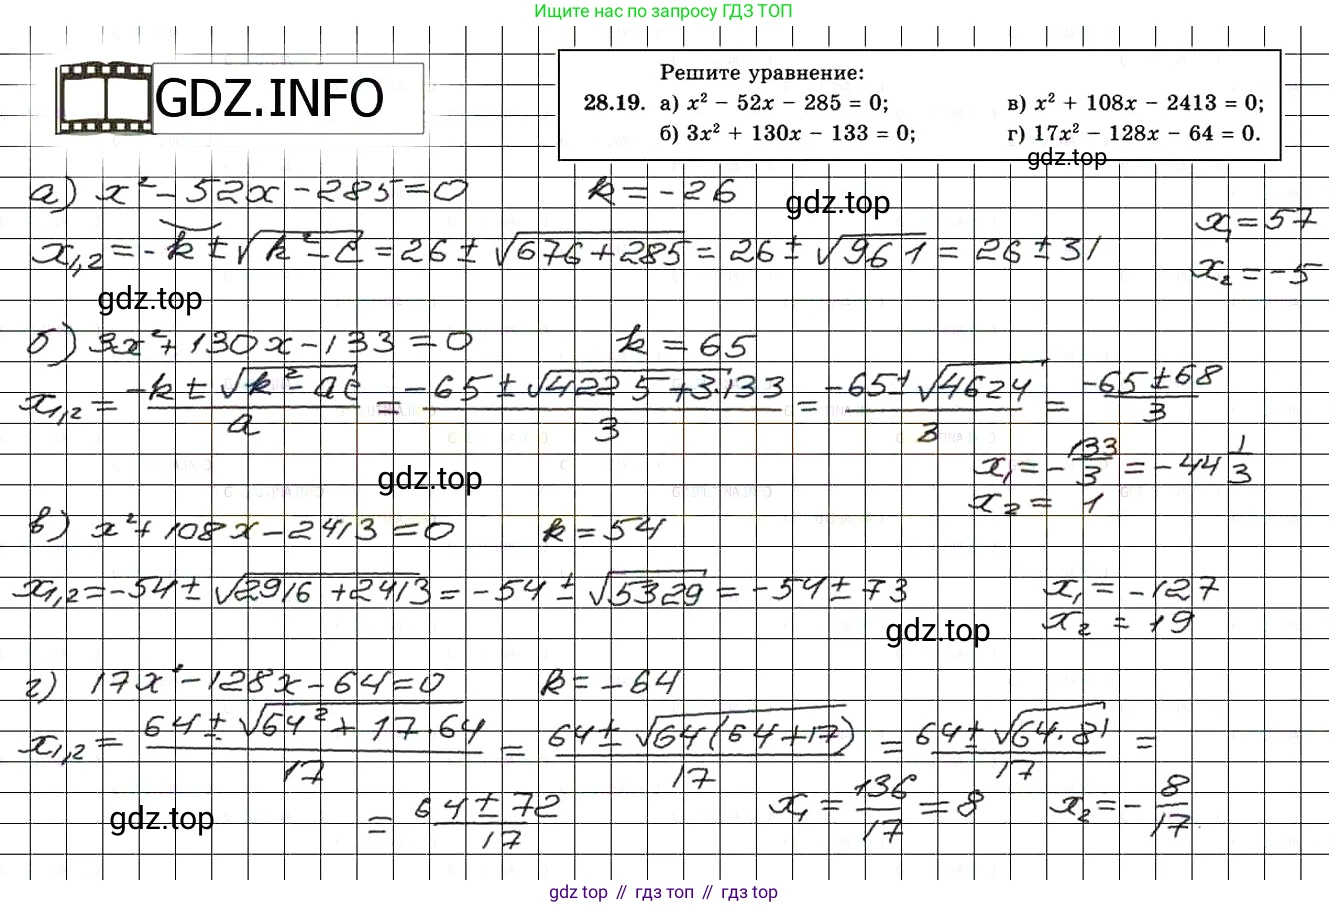 Ищите нас по запросу ГДЗ ТОП
GDZ.INFO
Решите уравнение:
28.19. а) x² − 52x − 285 = 0; в) x² + 108x − 2413 = 0;
б) 3x² + 130x − 133 = 0; г) 17x² − 128x − 64 = 0.
gdz.top
а) x² − 52x − 285 = 0 k = −26
gdz.top
x₁,₂ = −k ± √(k² − c) = 26 ± √(676 + 285) = 26 ± √961 = 26 ± 31
x₁ = 57
x₂ = −5
gdz.top
б) 3x² + 130x − 133 = 0 k = 65
x₁,₂ = (−k ± √(k² − ac))/a = (−65 ± √(4225 + 3·133))/3 = (−65 ± √4624)/3 = (−65 ± 68)/3
x₁ = −133/3 = −44 1/3
x₂ = 1
gdz.top
в) x² + 108x − 2413 = 0 k = 54
x₁,₂ = −54 ± √(2916 + 2413) = −54 ± √5329 = −54 ± 73
x₁ = −127
x₂ = 19
gdz.top
г) 17x² − 128x − 64 = 0 k = −64
x₁,₂ = (64 ± √(64² + 17·64))/17 = (64 ± √(64(64 + 17)))/17 = (64 ± √(64·81))/17 =
= (64 ± 72)/17 x₁ = 136/17 = 8 x₂ = −8/17
gdz.top
gdz top // гдз топ // гдз top